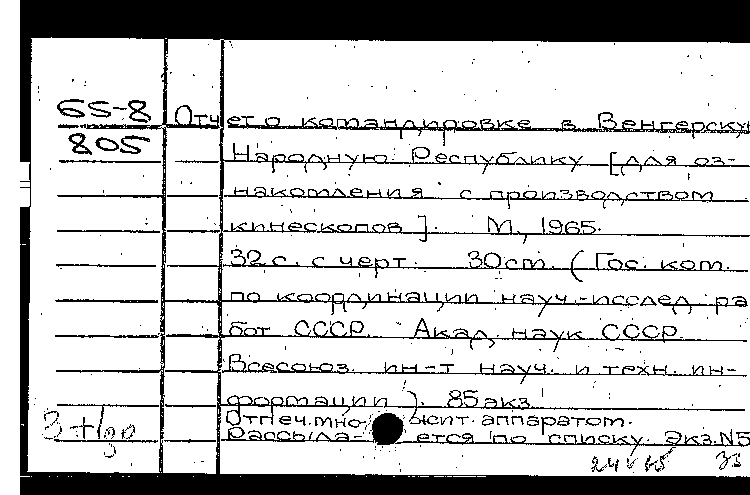 65-8 Отчет о командировке в Венгерску
805 Народную Республику [для оз-
накомления с производством
кинескопов]. М., 1965.
32 с. с черт. 30 cm. (Гос. ком.
по координации науч.-исслед. ра
бот СССР. Акад. наук СССР.
Всесоюз. ин-т науч. и техн. ин-
формации). 85 экз.
Отпеч. множит. аппаратом.
Рассылается по списку. Экз. N5